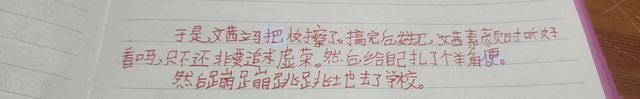 于是,文茜立马把妆擦了。搞完后发现,文茜素颜时听好
看吗,只不还非要追求虚荣。然后给自己扎了个羊角便。
然后蹦蹦跳跳地去了学校。